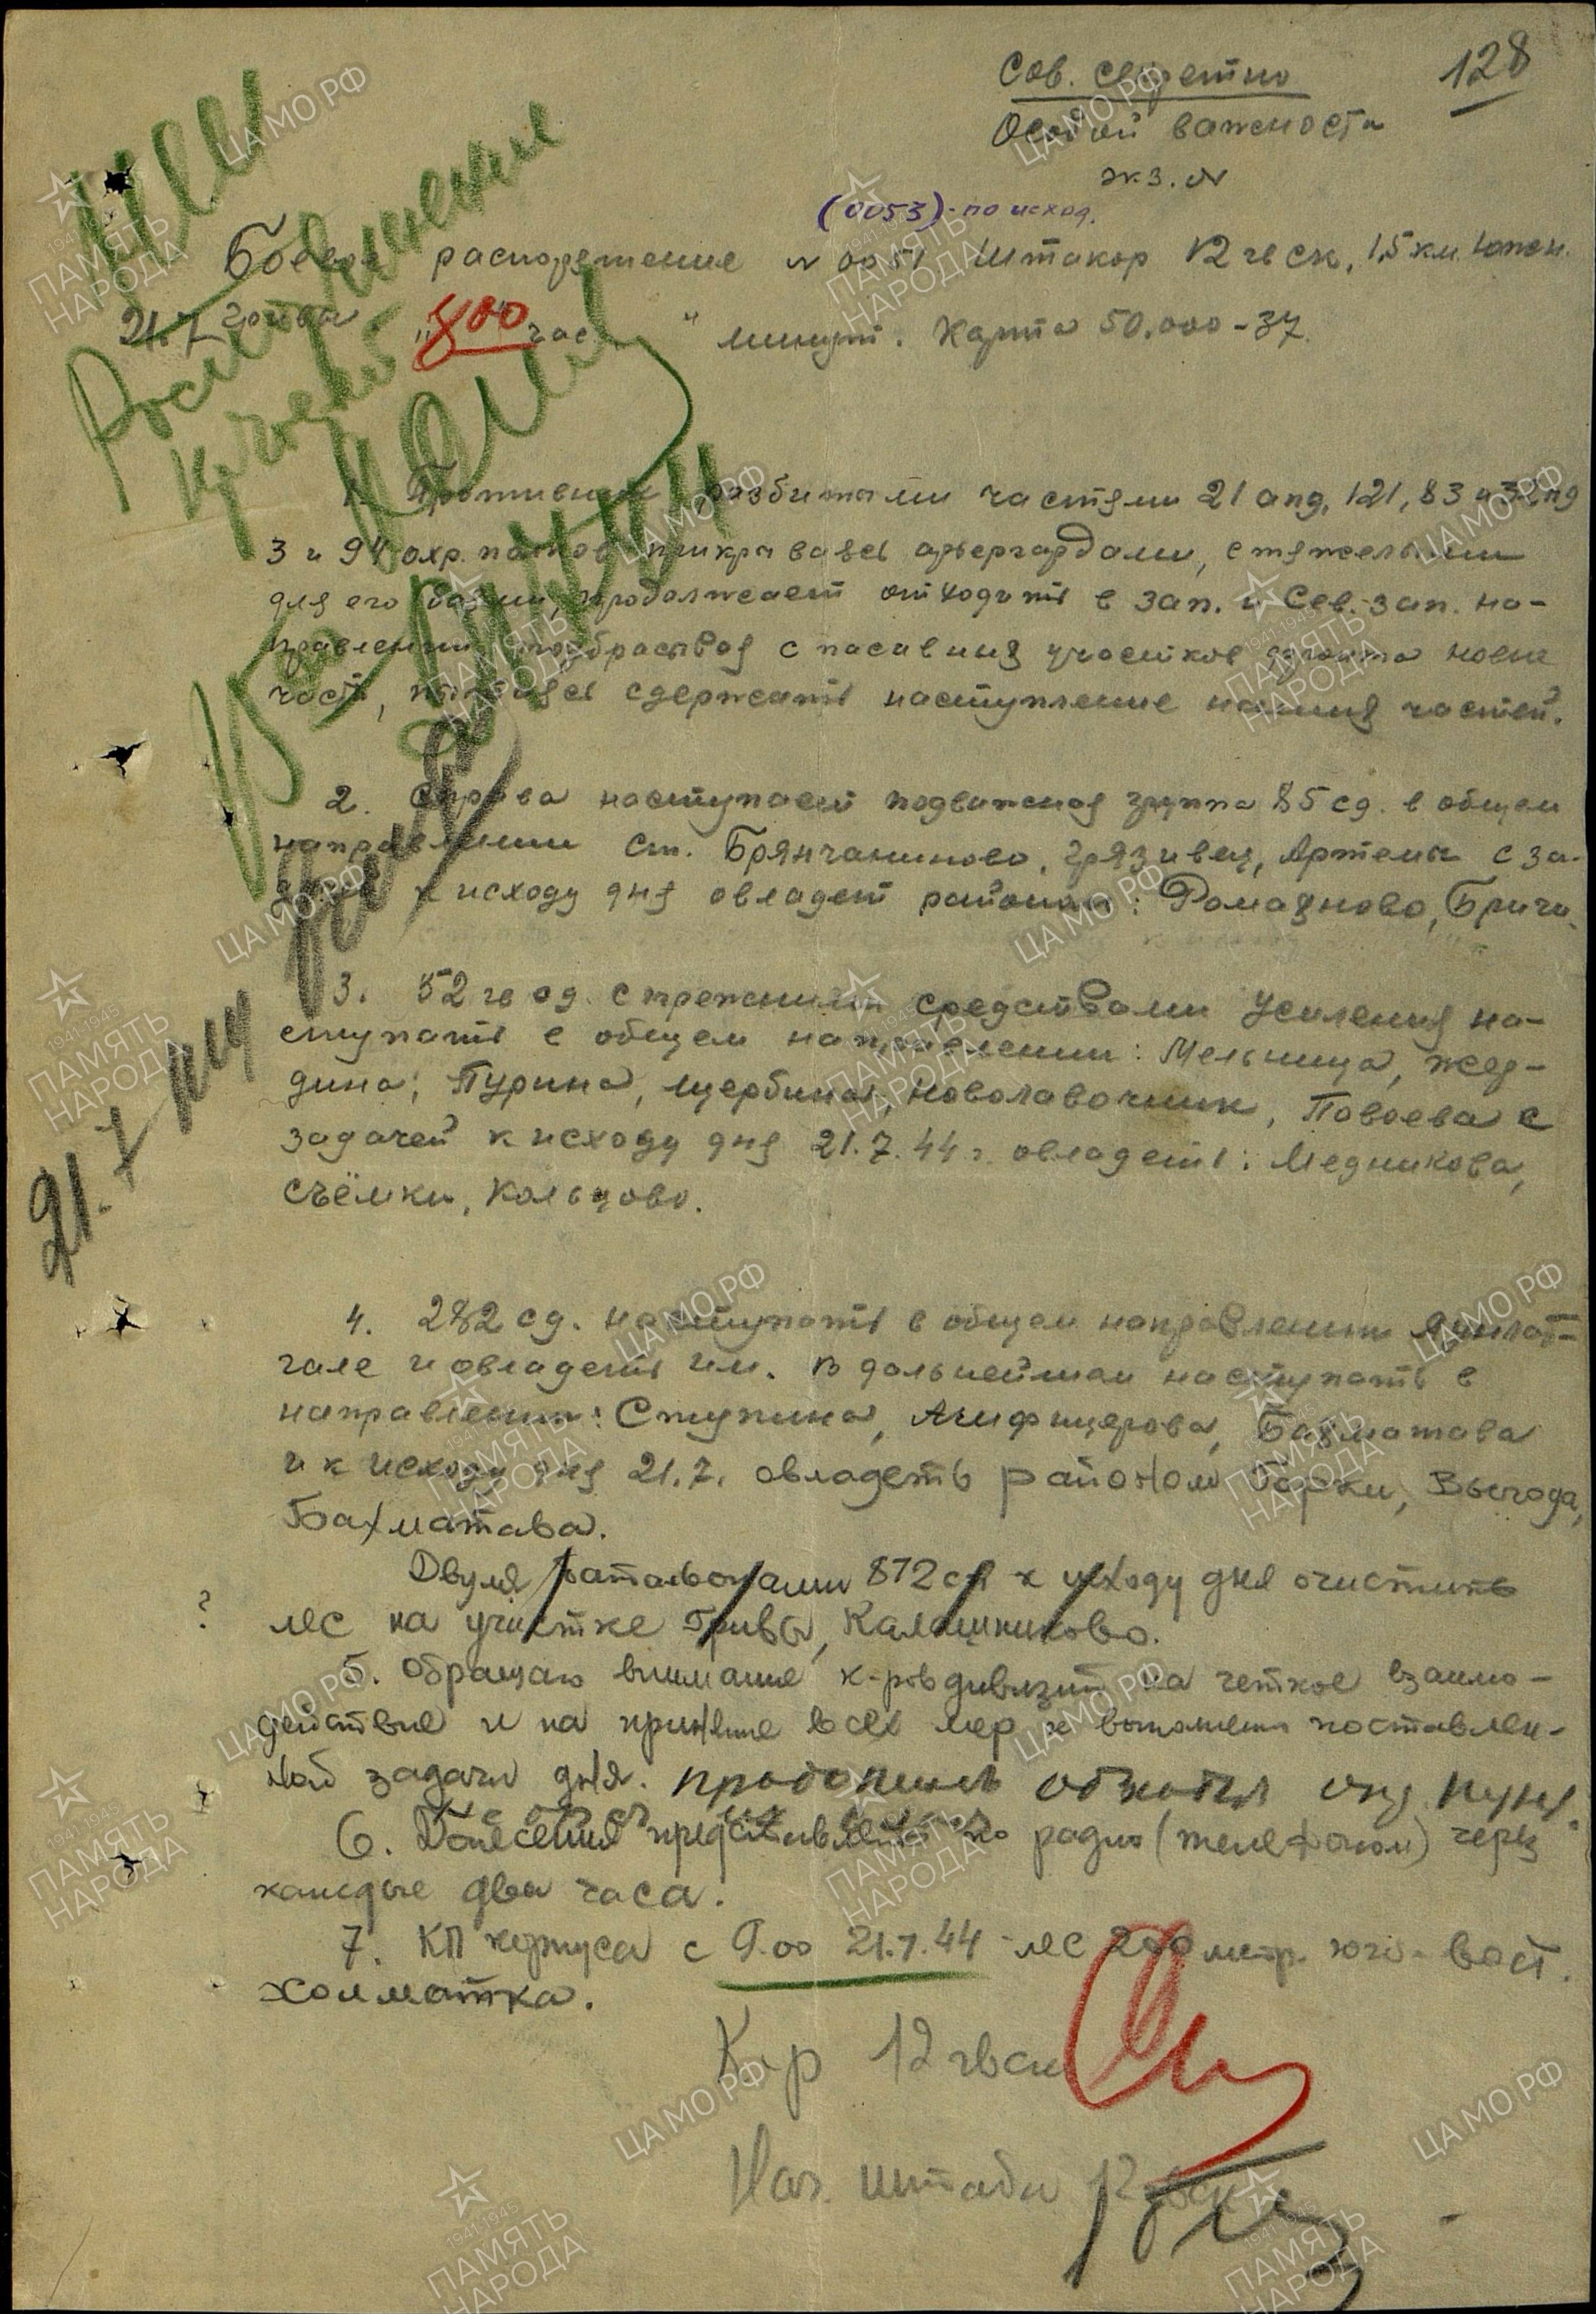 128
Сов. секретно
Особой важности
экз. №
(0053) - по исход.
Боевое распоряжение № 0051 Штакор 12 гв ск, 1,5 км. южн.
Грива
21.7 " 8 00 час " минут. Карта 50.000 - 37.
1. Противник разбитыми частями 21 апд, 121, 83 и 32 пд
3 и 94 охр. полков прикрываясь арьергардами, с тяжелыми
для его боями, продолжает отходить в зап. и Сев.-зап. на-
правлении, подбрасывая с пасивных участков фронта новые
части, пытаясь сдержать наступление наших частей.
2. Справа наступает подвижная группа 85 сд. в общем
направлении ст. Брянчаниново, Грязивец, Артемы с за-
дачей к исходу дня овладеть районом: Ромахново, Бричи.
3. 52 гв сд. с прежними средствами усиления на-
ступать в общем направлении: Мельница, Жед-
дина, Пурина, Щербиная, Новолавочник, Повоева с
задачей к исходу дня 21.7.44 г. овладеть: Медникова,
Съёмки, Кольцово.
4. 282 сд. наступать в общем направлении
и овладеть им. В дальнейшем наступать в
направлении: Ступина, Ачифицерова, Бахматова
и к исходу дня 21.7. овладеть районом Горки, Выгода,
Бахматава.
Двумя батальонами 872 сп к исходу дня очистить
? лес на участке Грива, Калашниково.
5. Обращаю внимание к-ров дивизий на четкое взаимо-
действие и на принятие всех мер к выполнению поставлен-
ной задачи дня.
6. Донесения представлять по радио (телефоном) через
каждые два часа.
7. КП корпуса с 9.00 21.7.44 - лес 200 метр. юго-вост.
Холматка.
К-р 12 гв ск
Нач. штаба 12 гв ск
21.7
ПАМЯТЬ НАРОДА
1941-1945
ЦАМО РФ